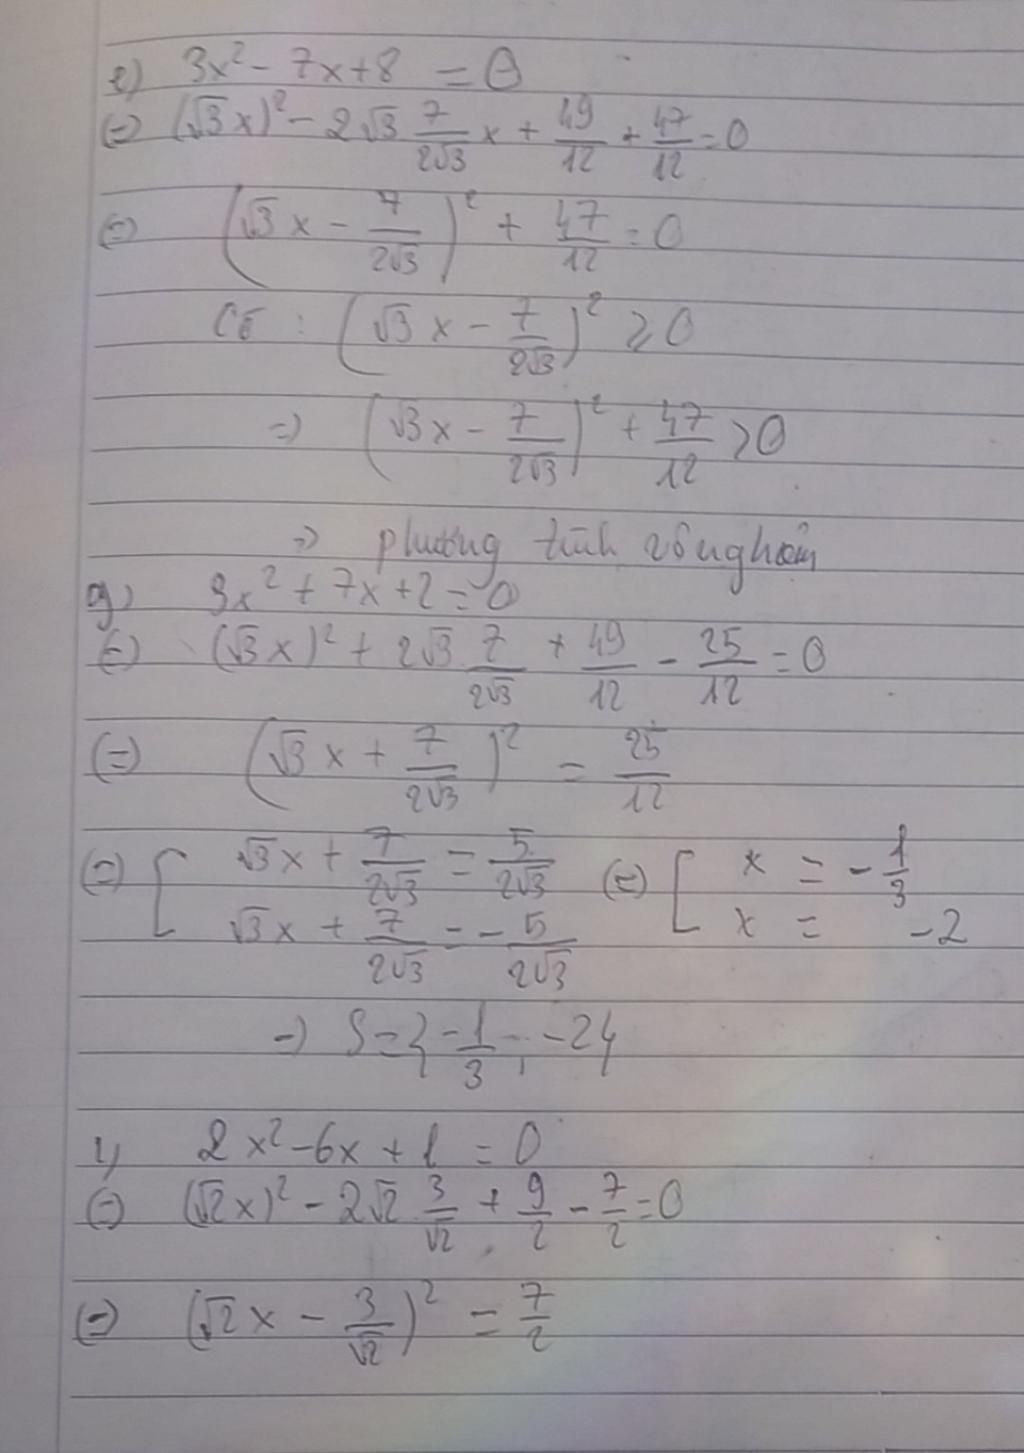 e) 3x² - 7x + 8 = 0
(=) (√3x)² - 2√3 7/2√3 x + 49/12 + 47/12 = 0
(=) (√3x - 7/2√3)² + 47/12 = 0
CÓ : (√3x - 7/2√3)² ⩾ 0
=) (√3x - 7/2√3)² + 47/12 > 0
=) phương trình vô nghiệm
g) 3x² + 7x + 2 = 0
(=) (√3x)² + 2√3 7/2√3 + 49/12 - 25/12 = 0
(=) (√3x + 7/2√3)² = 25/12
(=) [ √3x + 7/2√3 = 5/2√3 (=) [ x = -1/3
√3x + 7/2√3 = -5/2√3 x = -2
=) S = { -1/3 ; -2 }
i, 2x² - 6x + 1 = 0
(=) (√2x)² - 2√2 . 3/√2 + 9/2 - 7/2 = 0
(=) (√2x - 3/√2)² = 7/2